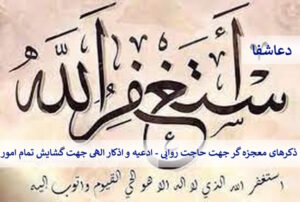 دعاشفا
استغفر الله
ذکرهای معجزه گر جهت حاجت روایی - ادعیه و اذکار الهی جهت گشایش تمام امور
استغفر الله الذي لا اله الا هو الحي القيوم واتوب اليه